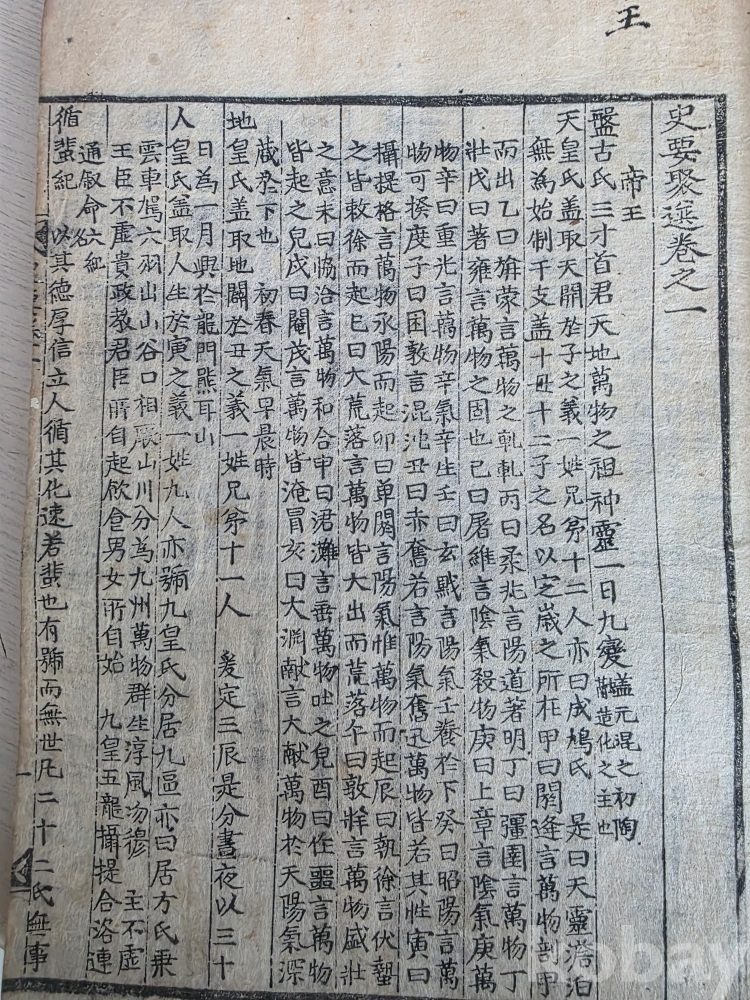 王
史要聚選卷之一
帝王
盤古氏三才首君天地萬物之祖神靈一日九變盖元混之初陶
融造化之主也
天皇氏盖取天開於子之義一姓兄弟十二人亦曰成鳩氏 是曰天靈澹泊
無爲始制干支盖十母十二子之名以定歲之所在甲曰閼逢言萬物剖甲
而出乙曰旃蒙言萬物之軋軋丙曰柔兆言陽道著明丁曰彊圉言萬物丁
壯戊曰著雍言萬物之固也己曰屠維言陰氣殺物庚曰上章言陰氣庚萬
物辛曰重光言萬物辛氣辛生壬曰玄黓言陽氣壬養於下癸曰昭陽言萬
物可揆度子曰困敦言混沌丑曰赤奮若言陽氣奮迅萬物皆若其性寅曰
攝提格言萬物承陽而起卯曰單閼言陽氣惟萬物而起辰曰執徐言伏蟄
之皆敕徐而起巳曰大荒落言萬物皆大出而荒落午曰敦牂言萬物盛壯
之意未曰協洽言萬物和合申曰涒灘言萬物吐之皃酉曰作噩言萬物
皆起之皃戌曰閹茂言萬物皆淹冒亥曰大淵献言大献萬物於天陽氣深
藏於下也 初春天氣早晨時
地皇氏盖取地闢於丑之義一姓兄弟十一人 爰定三辰是分晝夜以三十
日爲一月興於龍門熊耳山
人皇氏盖取人生於寅之義一姓九人亦號九皇氏分居九區亦曰居方氏乗
雲車駕六羽出山谷口相厥山川分爲九州萬物群生淳風沕穆 主不虛
王臣不虛貴政教君臣所自起飲食男女所自始 九皇五龍攝提合洛連
通叙命六紀
循蜚紀 以其德厚信立人循其化速若蜚也有號而無世凡二十二氏無事
一
obay